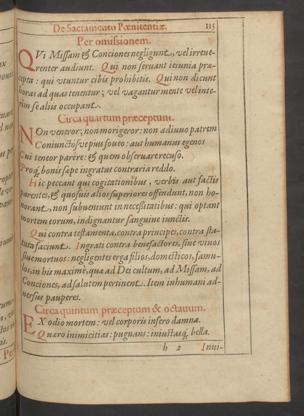 De Sacramento Pœnitentiæ. 115
Per omissionem.
QVi Missam & Conciones negligunt, vel irreue-
renter audiunt. Qui non seruant ieiunia præ-
cepta: qui vtuntur cibis prohibitis. Qui non dicunt
horas ad quas tenentur; vel vagantur mente vel inte-
rim se aliis occupant.
Circa quartum præceptum.
NOn veneror; non morigeror: non adiuuo patrem
Coniunctos ve pius foueo: aut humanus egenos
Cui teneor parere: & quem obseruare recuso.
Proq́ bonis sæpe ingratus contraria reddo.
Hic peccant qui cogitationibus, verbis aut factis
parentes, & quosuis alios superiores offendunt, non ho-
norant, non subueniunt in necessitatibus: qui optant
mortem eorum, indignantur sanguine iunctis.
Qui contra testamenta, contra principes, contra sta-
tuta faciunt. Ingrati contra benefactores, siue viuos
siue mortuos: negligentes erga filios, domesticos, famu-
los, in his maximè, quæ ad Dei cultum, ad Missam, ad
Conciones, ad salutem pertinent. Item inhumani ad-
uersus pauperes.
Circa quintum præceptum & octauum.
EX odio mortem: vel corporis infero damna.
Quæro inimicitias: pugnans: iniustaq́ bella.
h 2